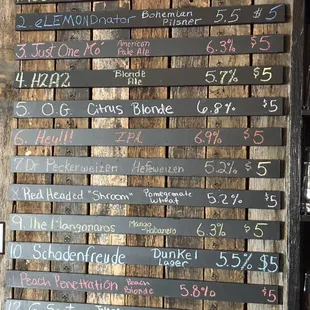 2. eLEMONDnator Bohemian Pilsner 5.5 $5
3. Just One Mo' American Pale Ale 6.3% $5
4. H2A2 Blonde Ale 5.7% $5
5. O.G. Citrus Blonde 6.8% $5
6. Hey!!! IPA 6.9% $5
7 Dr. Peckerweizen Hefeweizen 5.2% $5
Red Headed "Shroom" Pomegranate Wheat 5.2% $5
9. The Mangonaros Mango Habanero 6.3% $5
10. Schadenfreude Dunkel Lager 5.5% $5
Peach Penetration Peach Blonde 5.8% $5